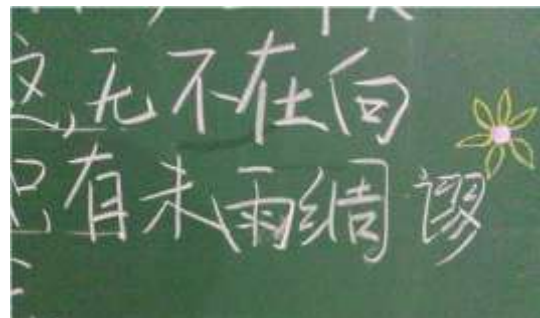 这,无不在向
只有未雨绸谬